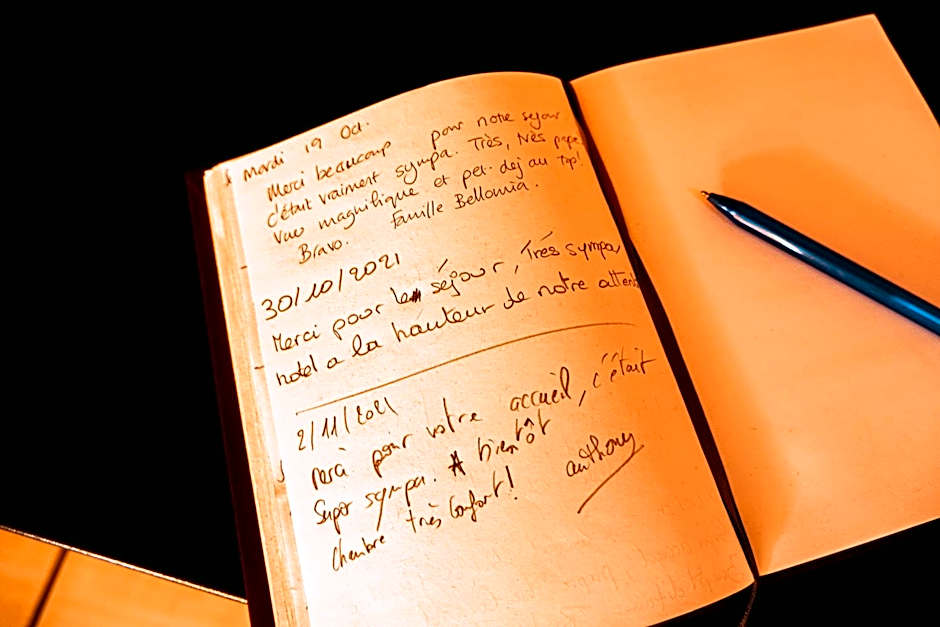 Mardi 19 Oct.
Merci beaucoup pour notre sejour
c'était vraiment sympa. Très, très
vue magnifique et pet-dej au top!
Bravo. Famille Bellomia.
30/10/2021
Merci pour le séjour, Très sympa,
hotel a la hauteur de notre
2/11/2021
Merci pour votre accueil, c'était
Super sympa. A bientôt
chambre très confort! anthony